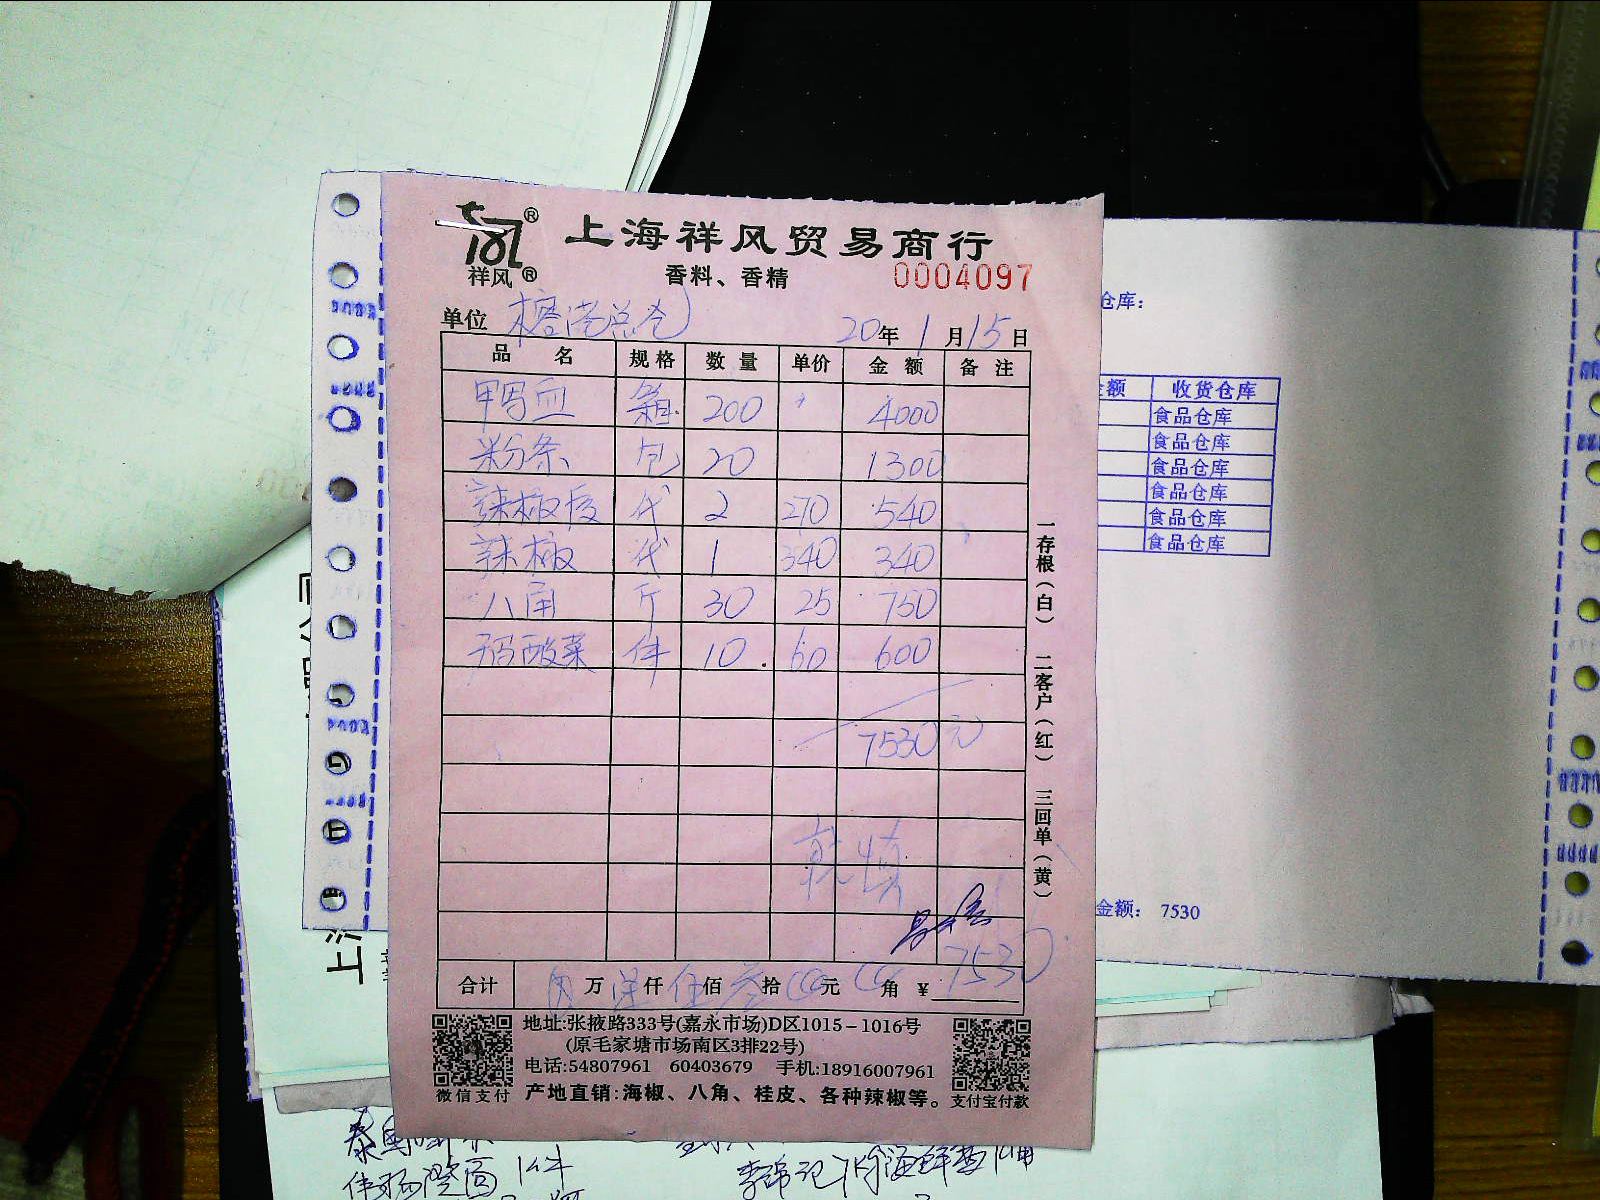 祥风
上海祥风贸易商行
香料、香精
0004097
单位
20年1月15日
品 名 规格 数量 单价 金额 备注
鸭血 箱 200 4000
粉条 包 20 1300
辣椒皮 代 2 270 540
辣椒 代 1 340 340
八角 斤 30 25 750
酸菜 件 10 60 600
7530元
合计 万 柒仟 伍佰 叁拾 元 角 ¥ 7530
一存根(白) 二客户(红) 三回单(黄)
地址:张掖路333号(嘉永市场)D区1015-1016号
(原毛家塘市场南区3排22号)
电话:54807961 60403679 手机:18916007961
微信支付
产地直销:海椒、八角、桂皮、各种辣椒等。
支付宝付款
仓库:
额 收货仓库
食品仓库
食品仓库
食品仓库
食品仓库
食品仓库
食品仓库
金额: 7530